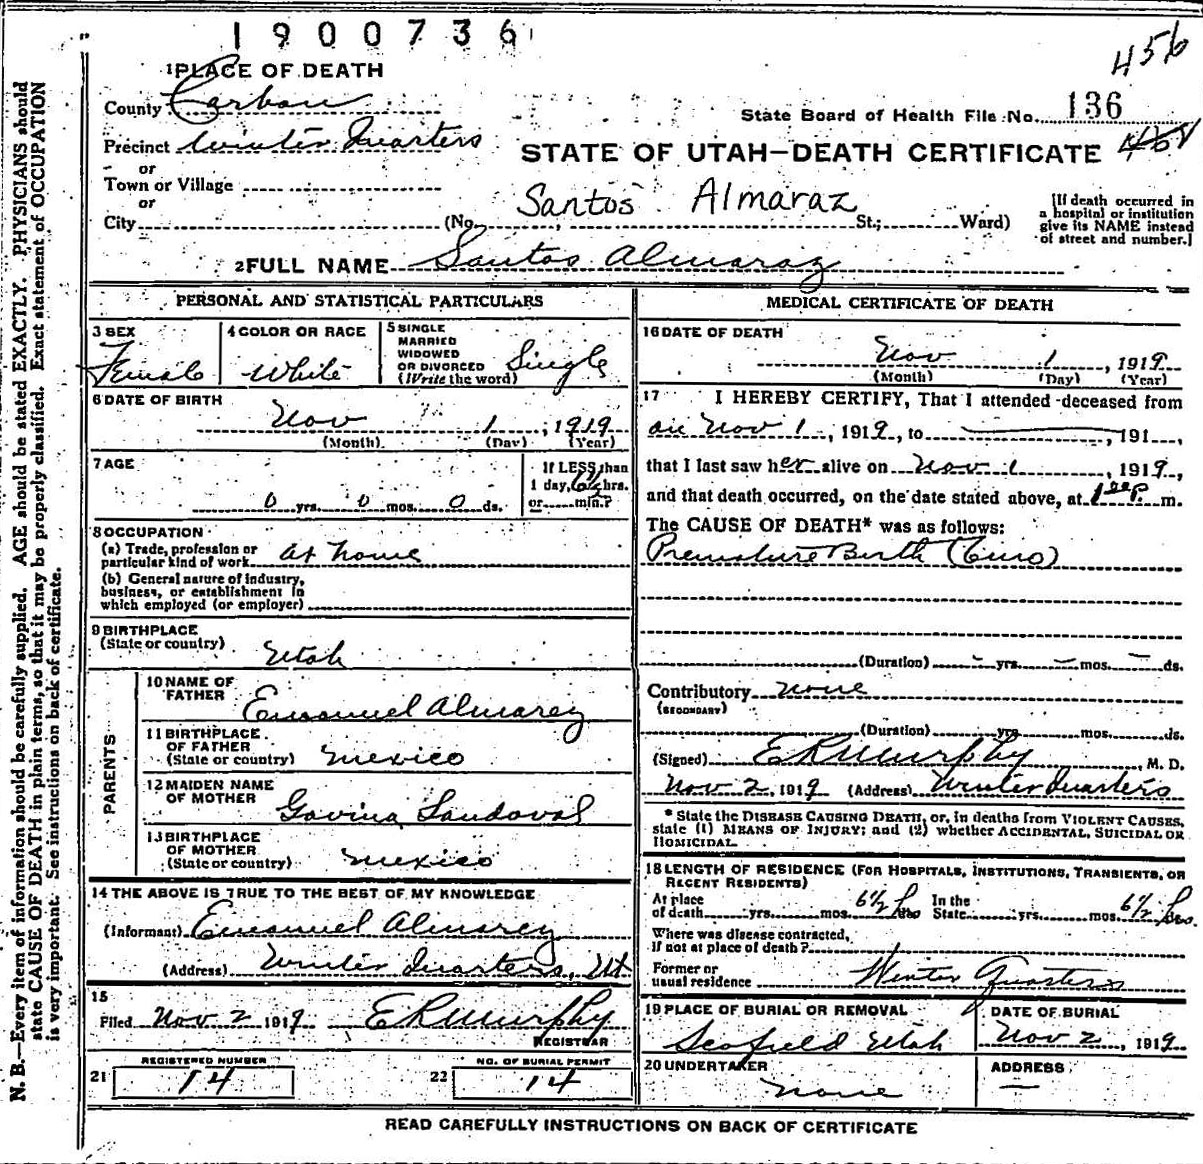 1900736
456
1 PLACE OF DEATH
County Carbon
State Board of Health File No. 136
Precinct Winter Quarters
STATE OF UTAH—DEATH CERTIFICATE
or
Town or Village
or
Santos Almaraz
City (No. , St.; Ward)
[If death occurred in
a hospital or institution
give its NAME instead
of street and number.]
2 FULL NAME Santos Almaraz
PERSONAL AND STATISTICAL PARTICULARS
3 SEX
Female
4 COLOR OR RACE
White
5 SINGLE
MARRIED
WIDOWED
OR DIVORCED
(Write the word)
Single
6 DATE OF BIRTH
Nov 1, 1919
(Month) (Day) (Year)
7 AGE
0 yrs. 0 mos. 0 ds.
If LESS than
1 day, 6½ hrs.
or min.?
8 OCCUPATION
(a) Trade, profession or
particular kind of work At home
(b) General nature of industry,
business, or establishment in
which employed (or employer)
9 BIRTHPLACE
(State or country)
Utah
PARENTS
10 NAME OF
FATHER
Emanuel Almarez
11 BIRTHPLACE
OF FATHER
(State or country) Mexico
12 MAIDEN NAME
OF MOTHER
Gavina Sandoval
13 BIRTHPLACE
OF MOTHER
(State or country) Mexico
14 THE ABOVE IS TRUE TO THE BEST OF MY KNOWLEDGE
(Informant) Emanuel Almarez
(Address) Winter Quarters, Ut
15
Filed Nov 2 1919 E R Murphy
REGISTRAR
REGISTERED NUMBER
21 14
NO. OF BURIAL PERMIT
22 14
MEDICAL CERTIFICATE OF DEATH
16 DATE OF DEATH
Nov 1, 1919
(Month) (Day) (Year)
17 I HEREBY CERTIFY, That I attended deceased from
on Nov 1, 1919, to , 191 ,
that I last saw her alive on Nov 1, 1919,
and that death occurred, on the date stated above, at m.
The CAUSE OF DEATH* was as follows:
Premature Birth
(Duration) – yrs. – mos. – ds.
Contributory None
(SECONDARY)
(Duration) yrs. mos. ds.
(Signed) E R Murphy, M. D.
Nov 2, 1919 (Address) Winter Quarters
* State the DISEASE CAUSING DEATH, or, in deaths from VIOLENT CAUSES,
state (1) MEANS OF INJURY; and (2) whether ACCIDENTAL, SUICIDAL OR
HOMICIDAL.
18 LENGTH OF RESIDENCE (FOR HOSPITALS, INSTITUTIONS, TRANSIENTS, OR
RECENT RESIDENTS)
At place
of death yrs. mos. 6½ hrs
In the
State yrs. mos. 6½ hrs.
Where was disease contracted,
if not at place of death?
Former or
usual residence Winter Quarters
19 PLACE OF BURIAL OR REMOVAL
Scofield Utah
DATE OF BURIAL
Nov 2, 1919
20 UNDERTAKER
None
ADDRESS
—
READ CAREFULLY INSTRUCTIONS ON BACK OF CERTIFICATE
N. B.—Every item of information should be carefully supplied. AGE should be stated EXACTLY. PHYSICIANS should
state CAUSE OF DEATH in plain terms, so that it may be properly classified. Exact statement of OCCUPATION
is very important. See instructions on back of certificate.